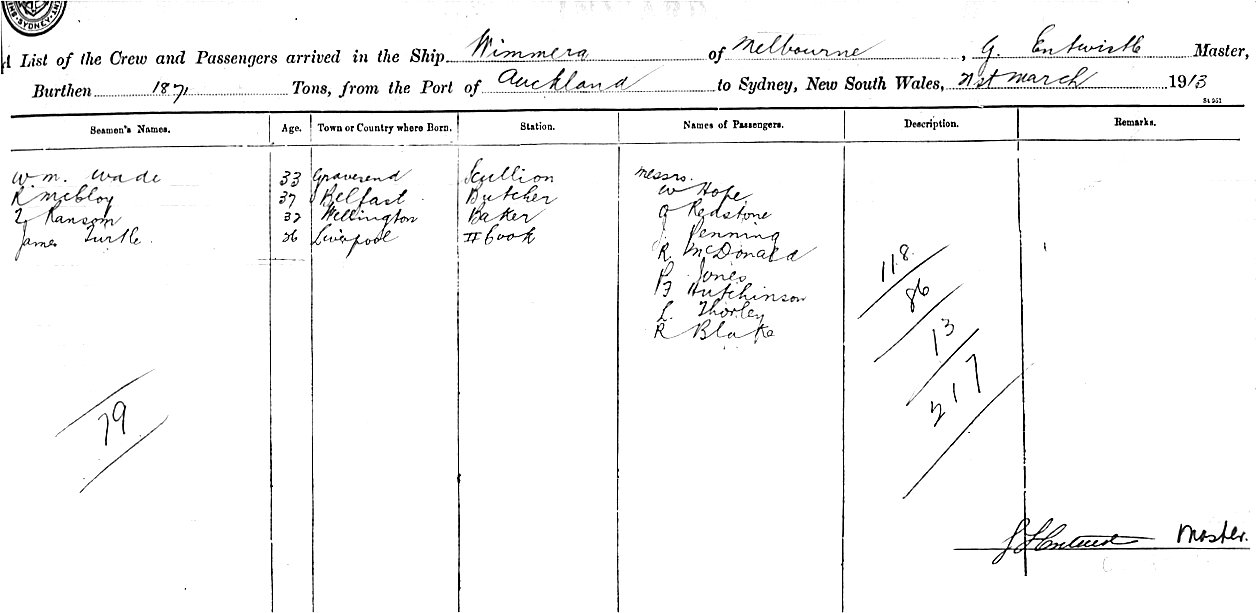 SYDNEY
A List of the Crew and Passengers arrived in the Ship Wimmera of Melbourne, G. Entwistle Master,
Burthen 1871 Tons, from the Port of Auckland to Sydney, New South Wales, 21st March 1913
St 251
Seamen's Names. Age. Town or Country where Born. Station. Names of Passengers. Description. Remarks.
Messrs.
Wm. Wade 33 Gravesend Scullion W Hope
R McEloy 37 Belfast Butcher G Redstone
Ransom 32 Wellington Baker J Penning
James Turtle 26 Liverpool II Cook R. McDonald
P. Jones
Hutchinson
L. Thorley
R Blake
118
86
13
217
79
Master.